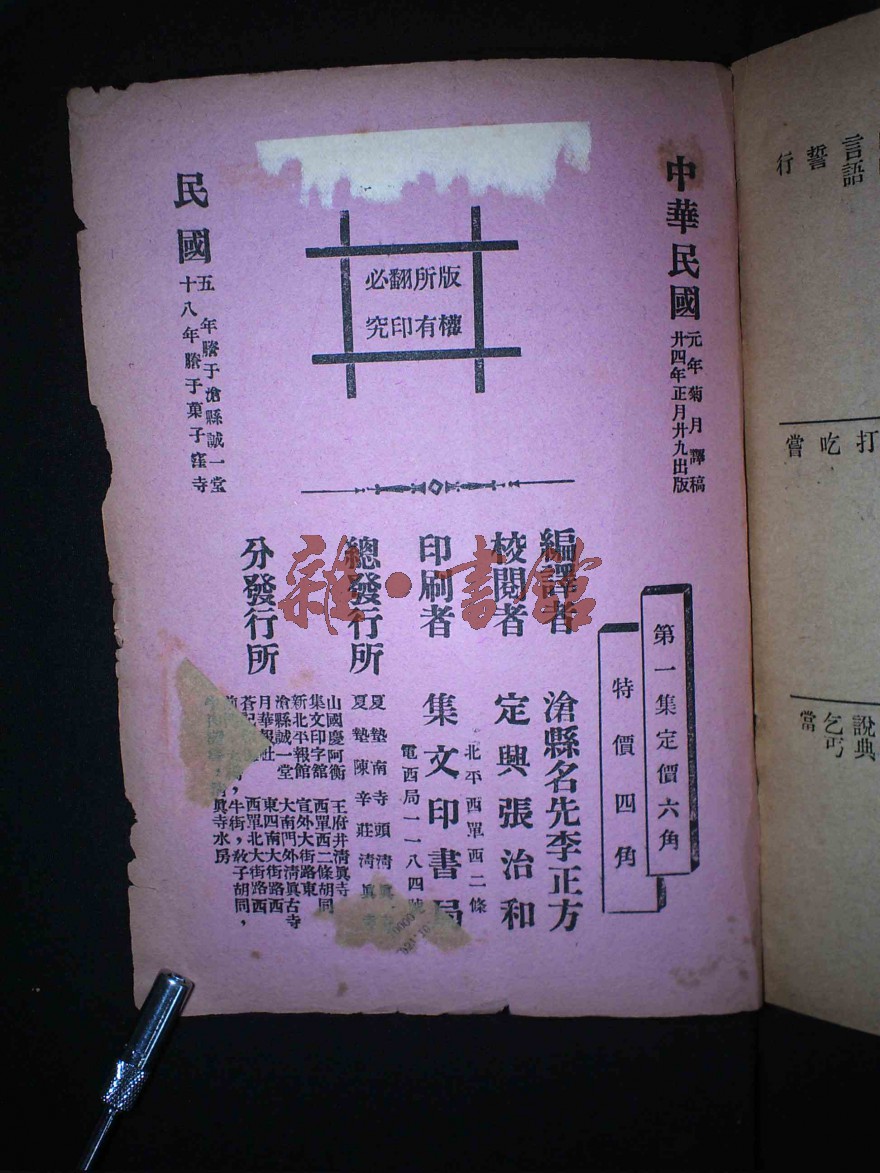 中華民國
元年菊月譯稿
廿四年正月廿九出版
版權所有翻印必究
民國
五年謄于滄縣誠一堂
十八年謄于菓子窪寺
第一集定價六角
特價四角
編譯者 滄縣名先李正方
校閱者 定興張治和
印刷者 集文印書局
北平西單西二條
電西局一一八四號
總發行所
夏墊南寺頭清真寺
夏墊陳辛莊清真寺
分發行所
山國慶阿衡 王府井清真寺
集文印字館 西單西二條胡同
新北平報館 宣外大街路東
滄縣誠一堂 大南門外清真古寺
月華報社 東四南大街路西
西單北大街路西
牛街,教子胡同,
真寺水房
雜·書館
言語
誓
行
打
吃
嘗
說典
乞丐
當